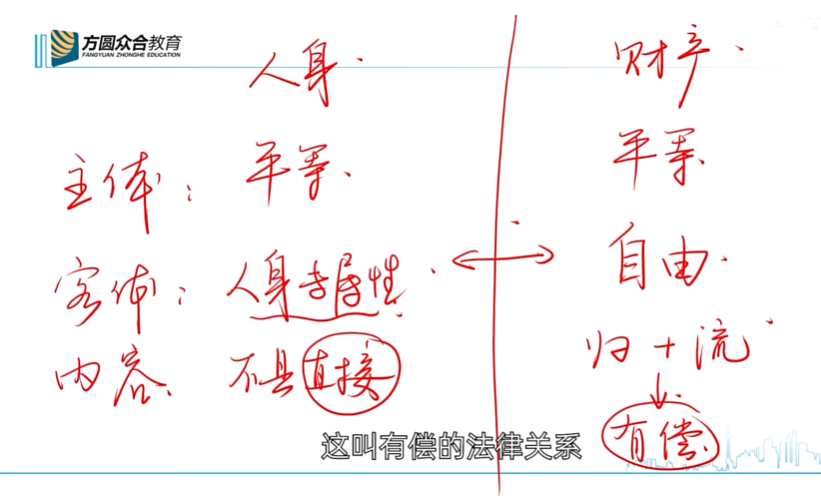 方圆众合教育
FANGYUAN ZHONGHE EDUCATION
人身 财产
主体： 平等 平等
客体： 人身专属性 自由
内容 不具直接 归＋流
有偿
这叫有偿的法律关系